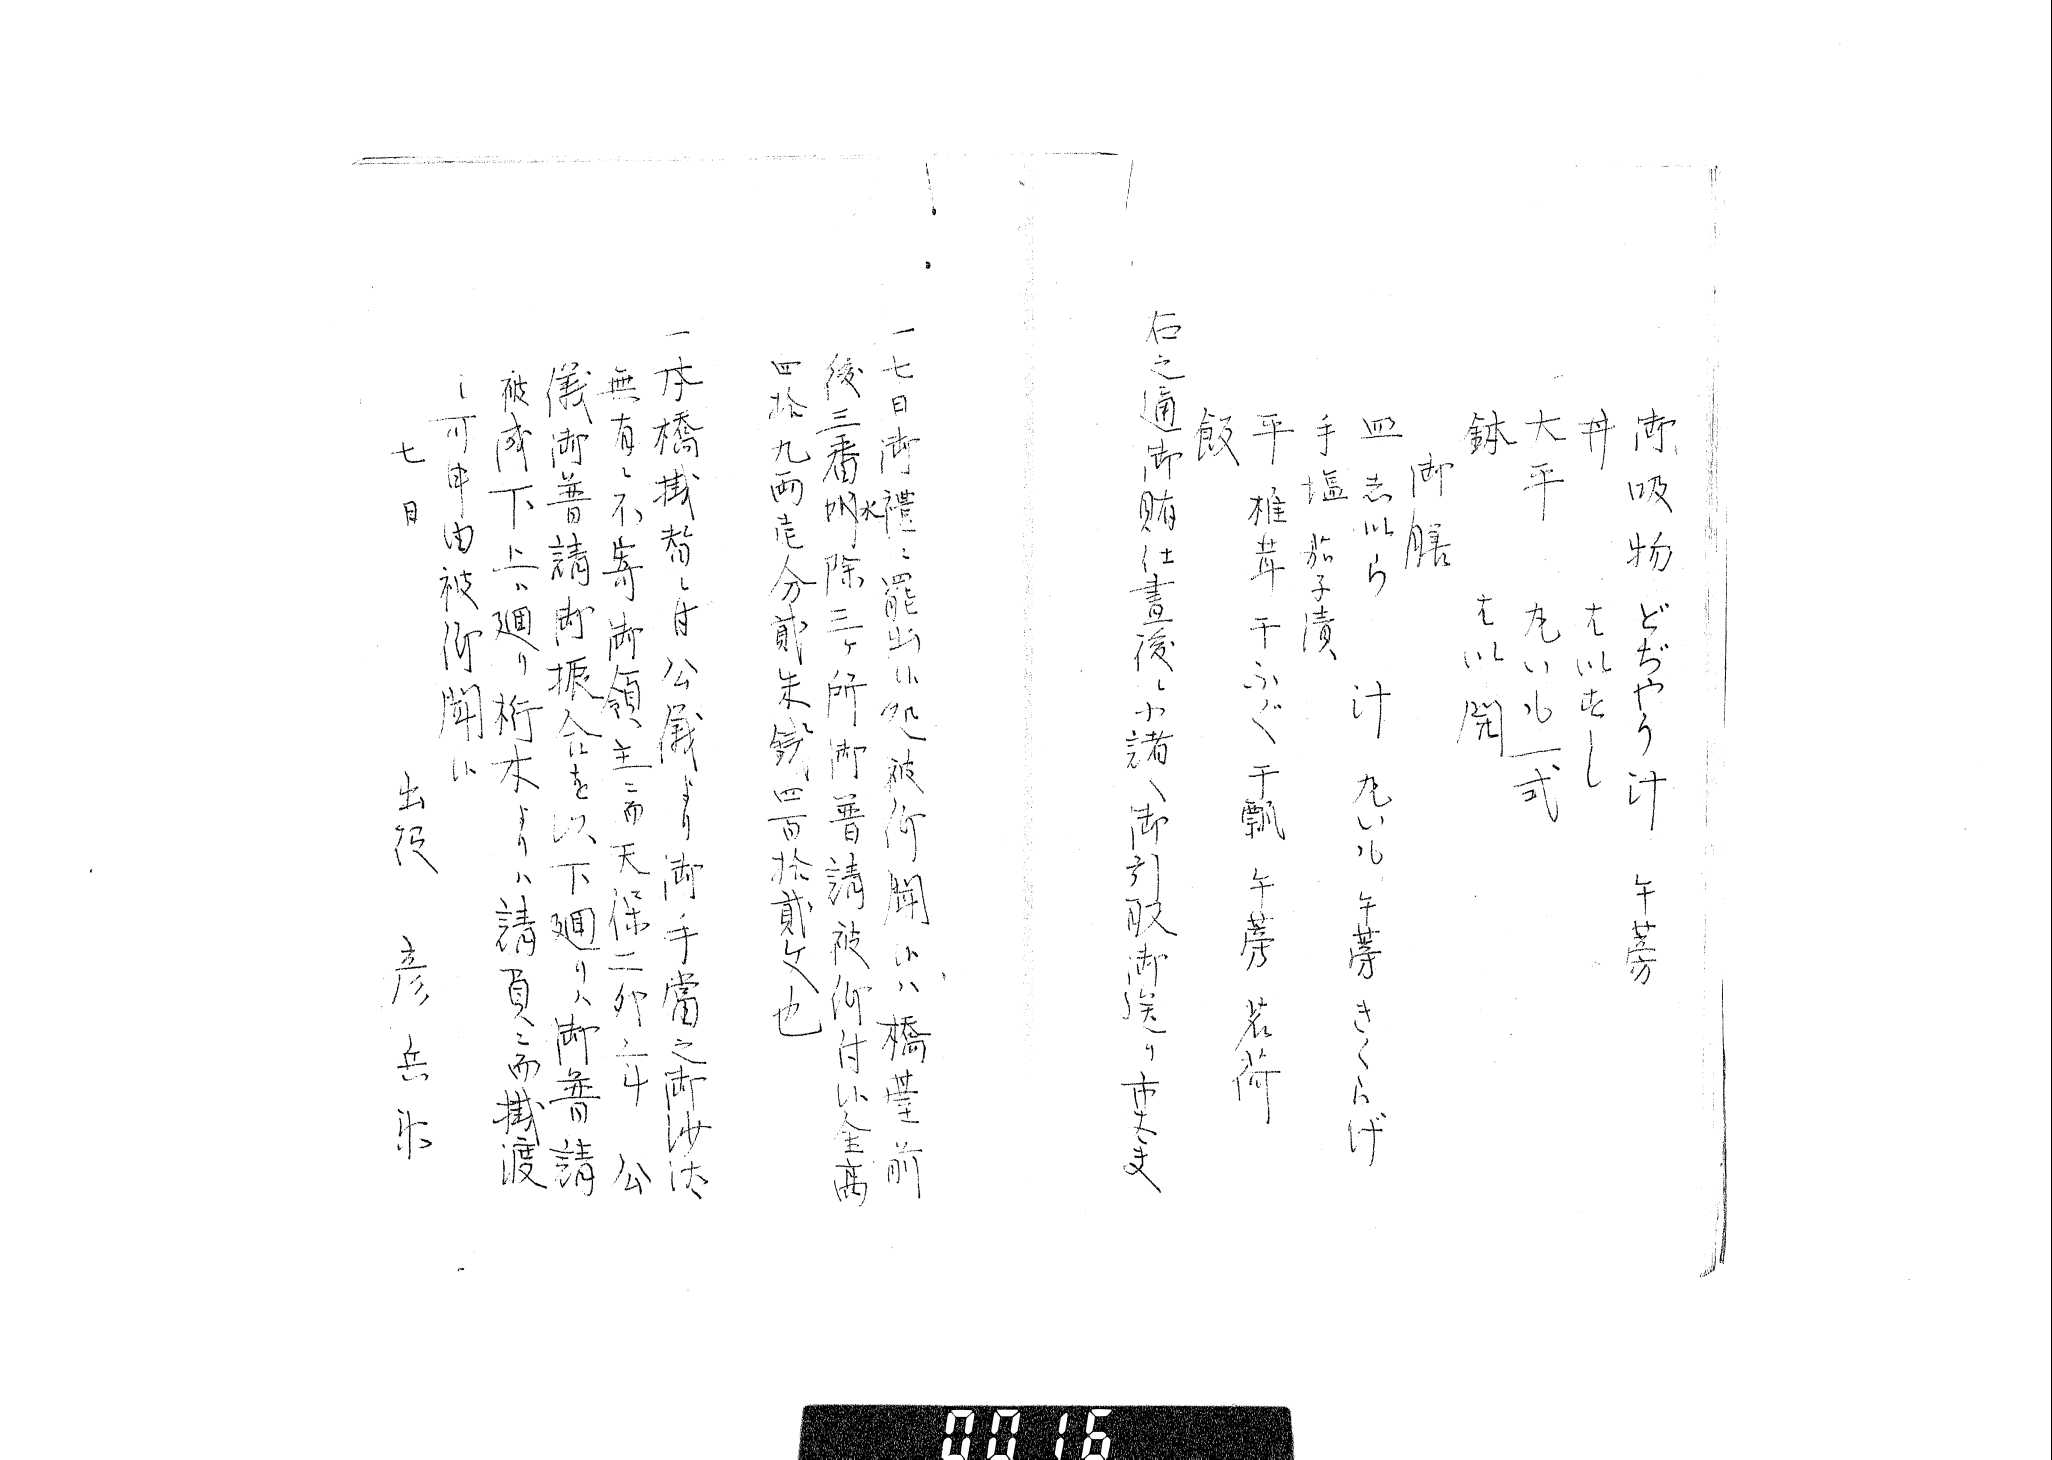 御吸物 どぢやう汁 午蒡
丼 者以むし
大平 丸いも一式
鉢 者以開
御膳
皿 志以ら 汁 丸いも 午蒡 きくらげ
手塩 茄子漬
平 椎茸 干ふぐ 干瓢 午蒡 茗荷
飯
右之通御賄仕昼後ニ小諸へ御引取御送り市丈夫
一七日御禮ニ罷出候処被仰聞候ハ橋䑓前
後三番水除三ヶ所御普請被仰付候金高
四拾九両壱分貳朱銭四百拾貳文也
一本橋掛替ニ付 公儀より御手當之御沙汰
無有之不寄御領主ニ而天保二卯年 公
儀御普請御振合を以下廻りハ御普請
被成下上ハ廻り桁木よりハ請負ニ而掛渡
し可申由被仰聞候
七日 出役 彦兵衛
0016